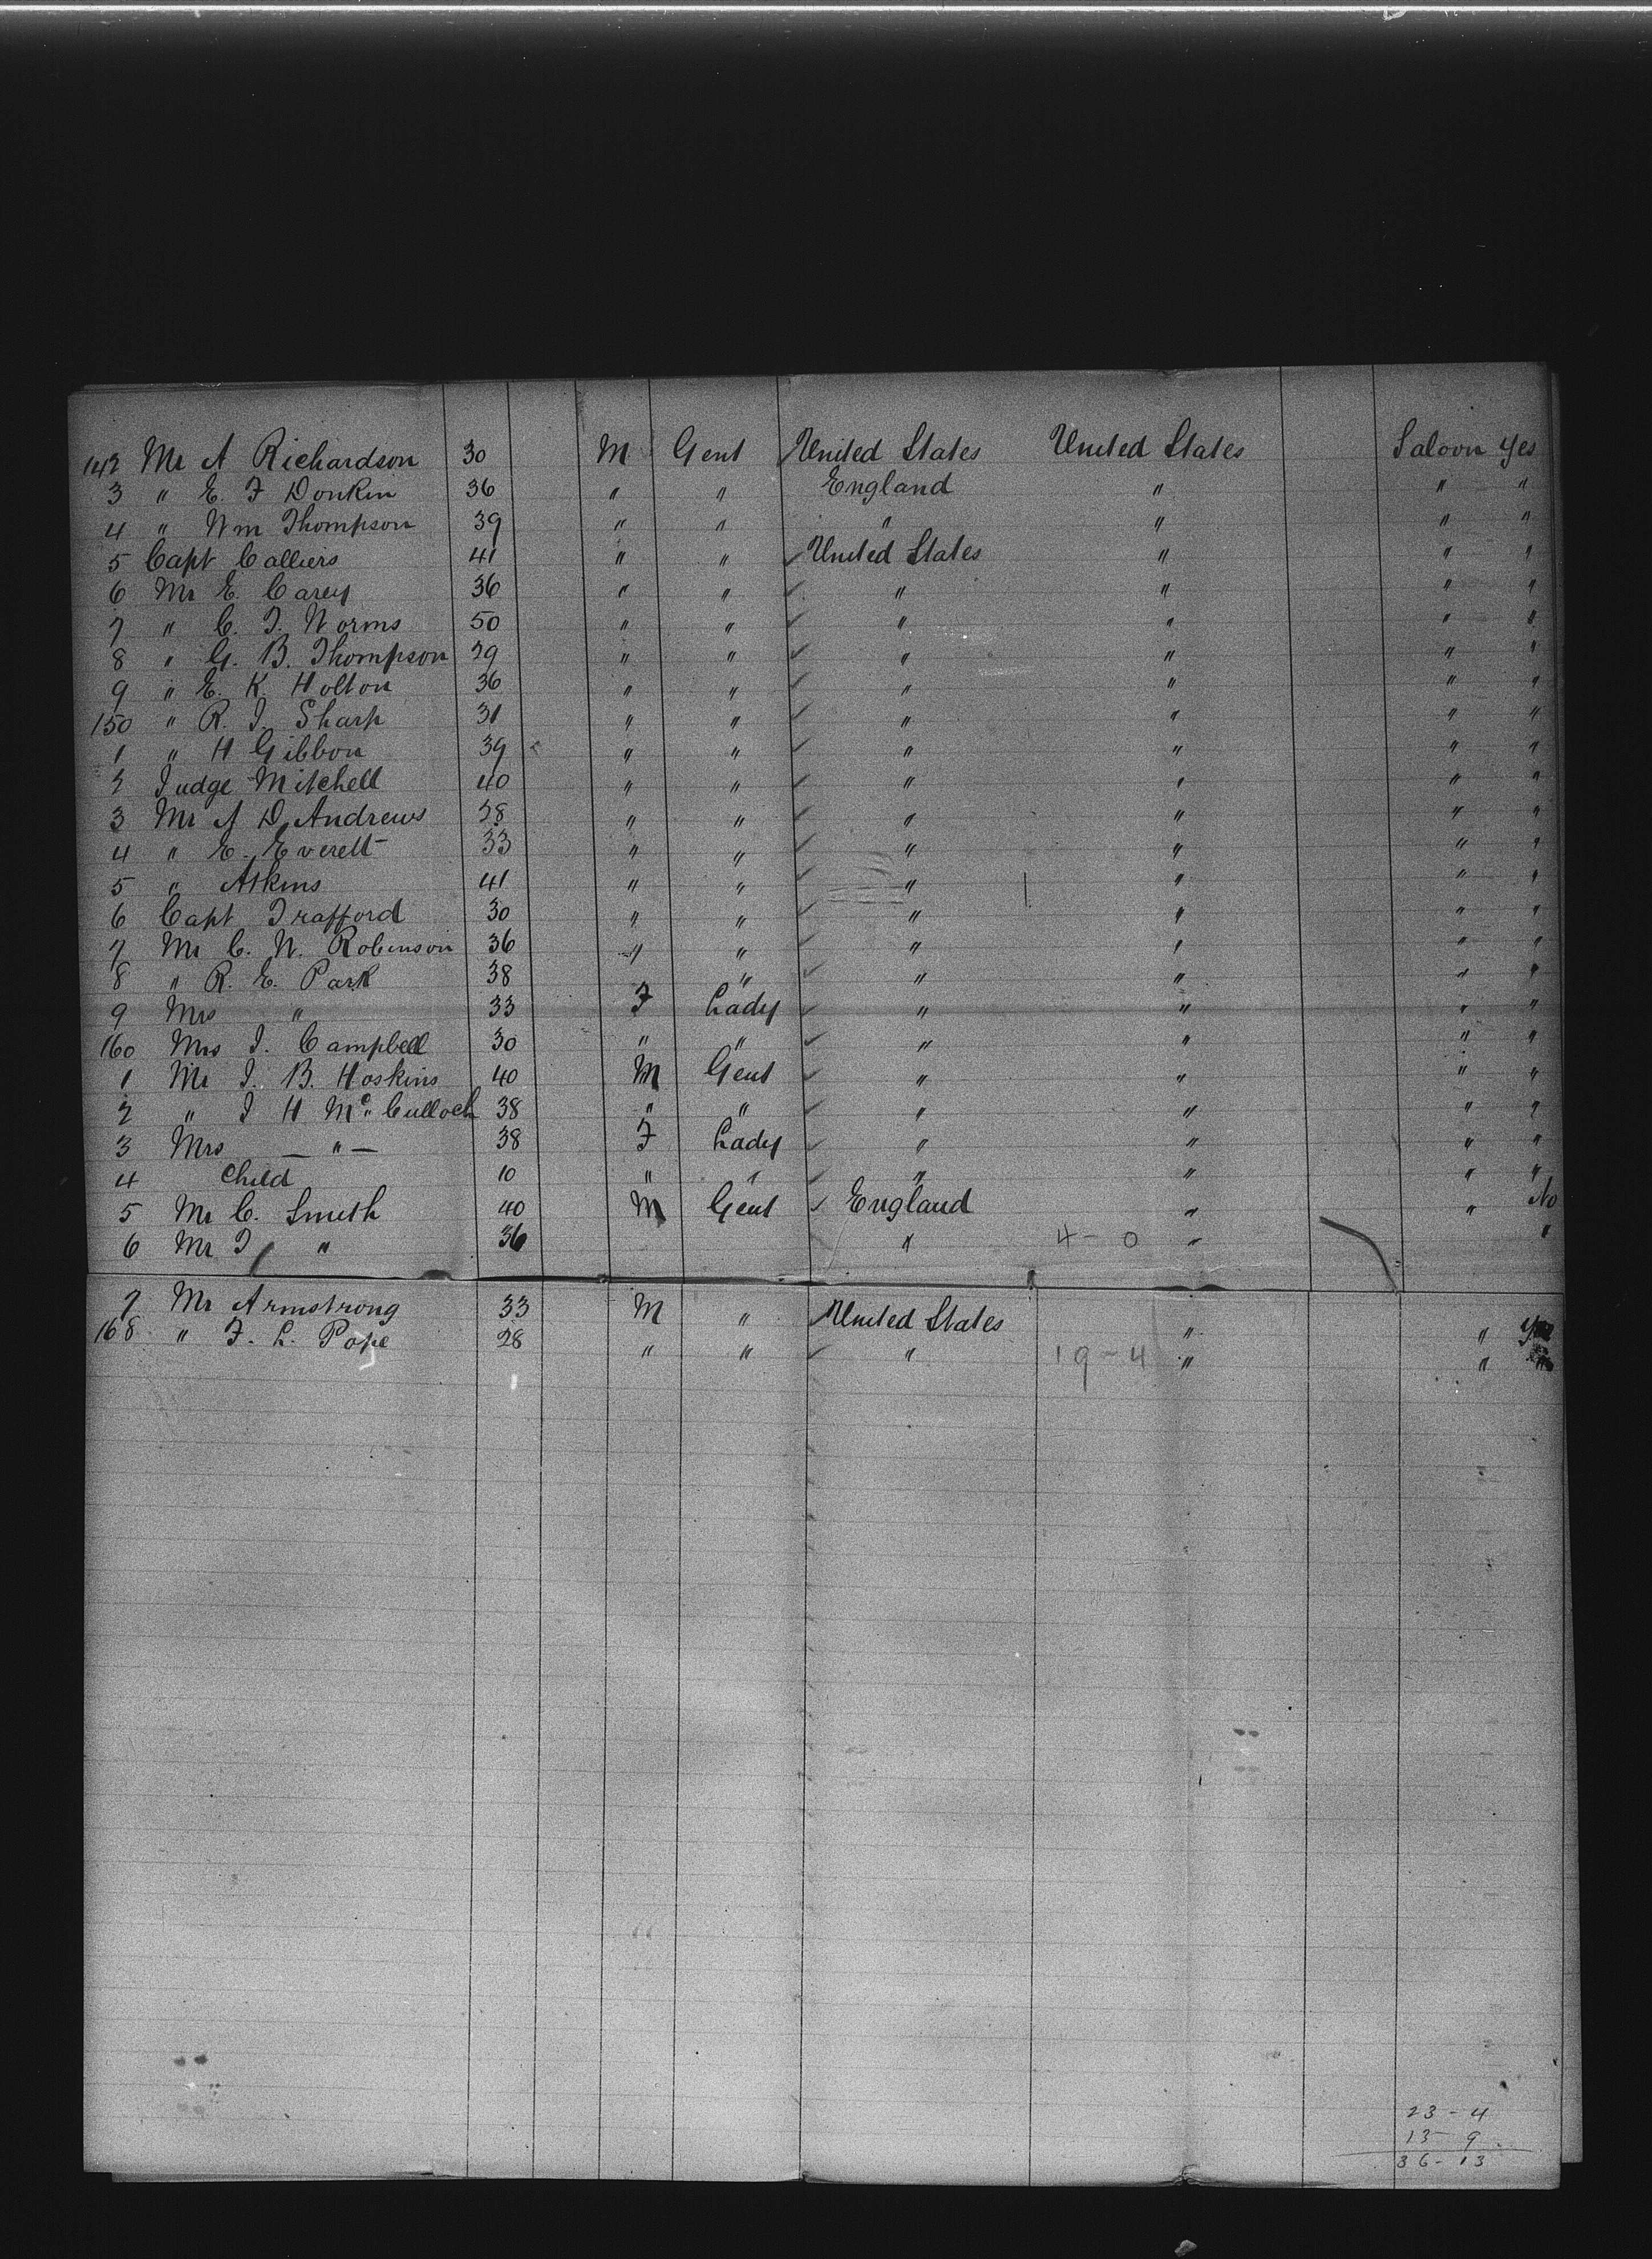 142 Mr A Richardson 30 M Gent United States United States Saloon Yes
3 " E. F Donkin 36 " " England " " "
4 " Wm Thompson 39 " " " " " "
5 Capt Calliers 41 " " United States " " "
6 Mr E. Carey 36 " " " " " "
7 " C. T. Worms 50 " " " " " "
8 " G. B. Thompson 29 " " " " " "
9 " E. K. Holton 36 " " " " " "
150 " R. J. Sharp 31 " " " " " "
1 " H Gibbon 39 " " " " " "
2 Judge Mitchell 40 " " " " " "
3 Mr A D. Andrews 28 " " " " " "
4 " E. Everett 33 " " " " " "
5 " Atkins 41 " " " " " "
6 Capt Trafford 30 " " " " " "
7 Mr C. W. Robinson 36 " " " " " "
8 " R. E. Park 38 " " " " "
9 Mrs " 33 F Lady " " " "
160 Mrs J. Campbell 30 " " " " " "
1 Mr J. B. Hoskins 40 M Gent " " " "
2 " J H Mc Culloch 38 " " " " " "
3 Mrs — " — 38 F Lady " " " "
4 Child 10 " " " " " "
5 Mr C. Smith 40 M Gent England " " No
6 Mr T " 36 " 4-0 " "
7 Mr Armstrong 33 M " United States " " Yes
168 " F. L. Pope 28 " " " 19-4 " " "
23-4
13 9
36-13